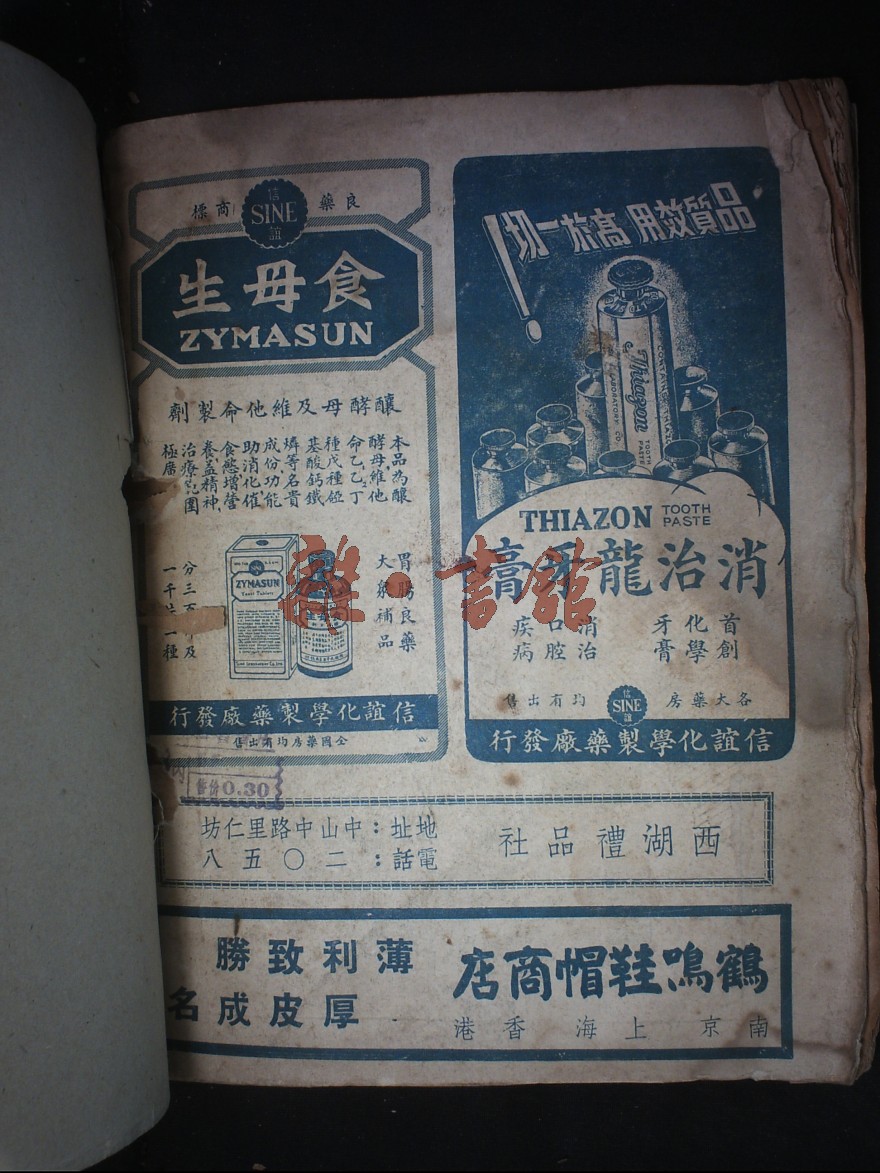 品質效用高於一切!
Thiazon
THIAZON TOOTH PASTE
消治龍牙膏
首創化學牙膏
消治口腔疾病
各大藥房 均有出售
信誼
SINE
信誼化學製藥廠發行
良藥 商標
信誼
SINE
食母生
ZYMASUN
釀酵母及維他命製劑
本品為釀
酵母,維他
命乙乙丁
種戊種錏
基酸鈣鐵
燐等名貴
成份功能
助消化催
食慾增營
養益精神
治療範圍
極廣
胃腸良藥
大衆補品
ZYMASUN
Yeast Tablets
食母生
分三百片及
一千片二種
信誼化學製藥廠發行
全國藥房均有出售
0.30
西湖禮品社
地址:中山中路里仁坊
電話:二〇五八
鶴鳴鞋帽商店
南京 上海 香港
薄利致勝
厚皮成名
雜·書館